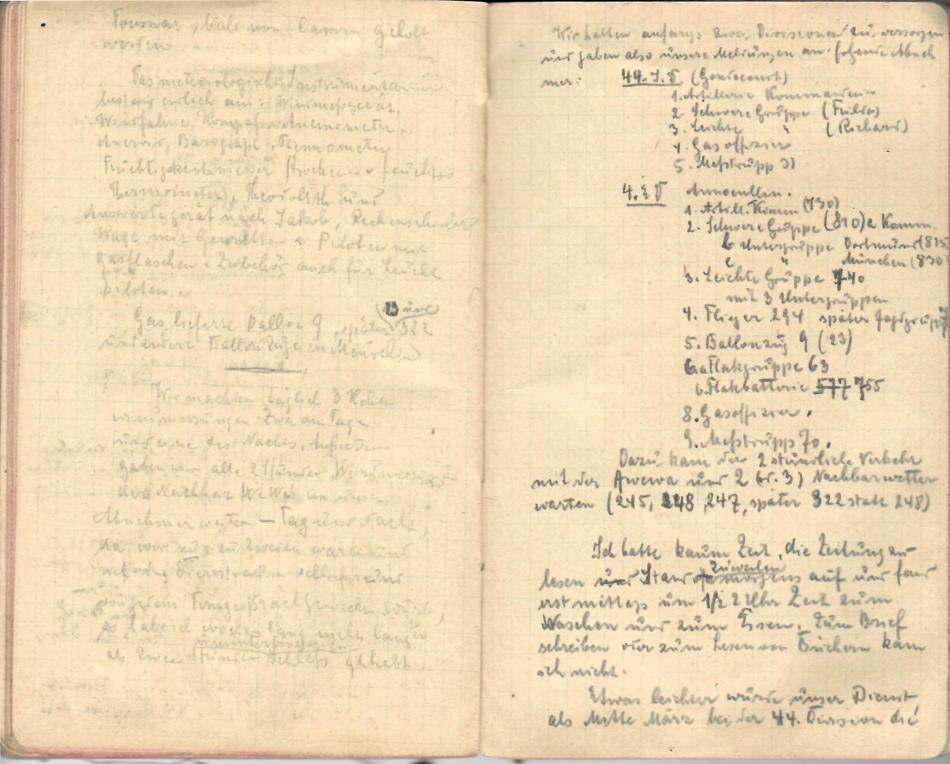 Tournai, bald von Cavrin geholt
werden
Das meteorologische Instrumentarium
bestand endlich aus: Windmesser,
Windfahne, Kompass, Anemometer,
Aneroid, Barograph, Thermometer
Feuchtigkeitsmesser (trockenes u. feuchtes
Thermometer), Theodolith und
Auswertegerät nach Jakob, Rechenschieber
Wage mit Gewichten u. Piloten mit
Gasflaschen u. Zubehör auch für Leucht
piloten.
Gas lieferte Ballon 9, später 322
und andere Ballonzüge
Wir machten täglich 3 Höhen
windmessungen Zwei am Tage
und eine des Nachts. Außerdem
gaben wir alle 2 Stunden
die Nachbar
Abnehmer weiter. — Tag und Nacht,
da wir nur zu zweien waren und
neben Dienstraum schliefen und
von jedem Ferngespräch geweckt wurde,
habe ich wochenlang nicht länger
als zwei Stunden Schlaf gehabt.
Wir hatten anfangs zwei Divisionen zu versorgen
und gaben also unsere Meldungen an folgende Abneh
mer: 44. I.D (Gondecourt)
1. Artillerie Kommandeur
2. Schwere Gruppe
3. Leichte " (Richard)
4. Gasoffizier
5. Meßtrupp 31
4. E D Annoeullin.
1. Artill. Komm (730)
2. Schwere Gruppe (810) a Komm.
b Untergruppe Dortmund (815
c " München (830
3. Leichte Gruppe 740
mit 3 Untergruppen
4. Flieger 294 später Jagdgruppe
5. Ballonzug 9 (23)
6. a Flakgruppe 63
b. Flakbatterie 577 755
8. Gasoffizier.
9. Meßtrupp 70.
Dazu kam der 2 stündliche Verkehr
mit der Awewa und 2 (bz. 3) Nachbarwetter
warten (245, 248, 247, später 322 statt 248)
Ich hatte kaum Zeit, die Zeitung zu
lesen und stand zuweilen morgens auf und fand
erst mittags um 1/2 2 Uhr Zeit zum
Waschen und zum Essen. Zum Brief
schreiben oder zum Lesen von Büchern kam
ich nicht.
Etwas leichter wurde unser Dienst
als Mitte März bei der 44. Division die